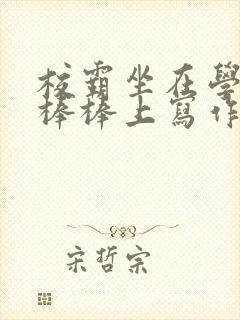 校霸坐在學
棒棒上寫作
宋哲宗